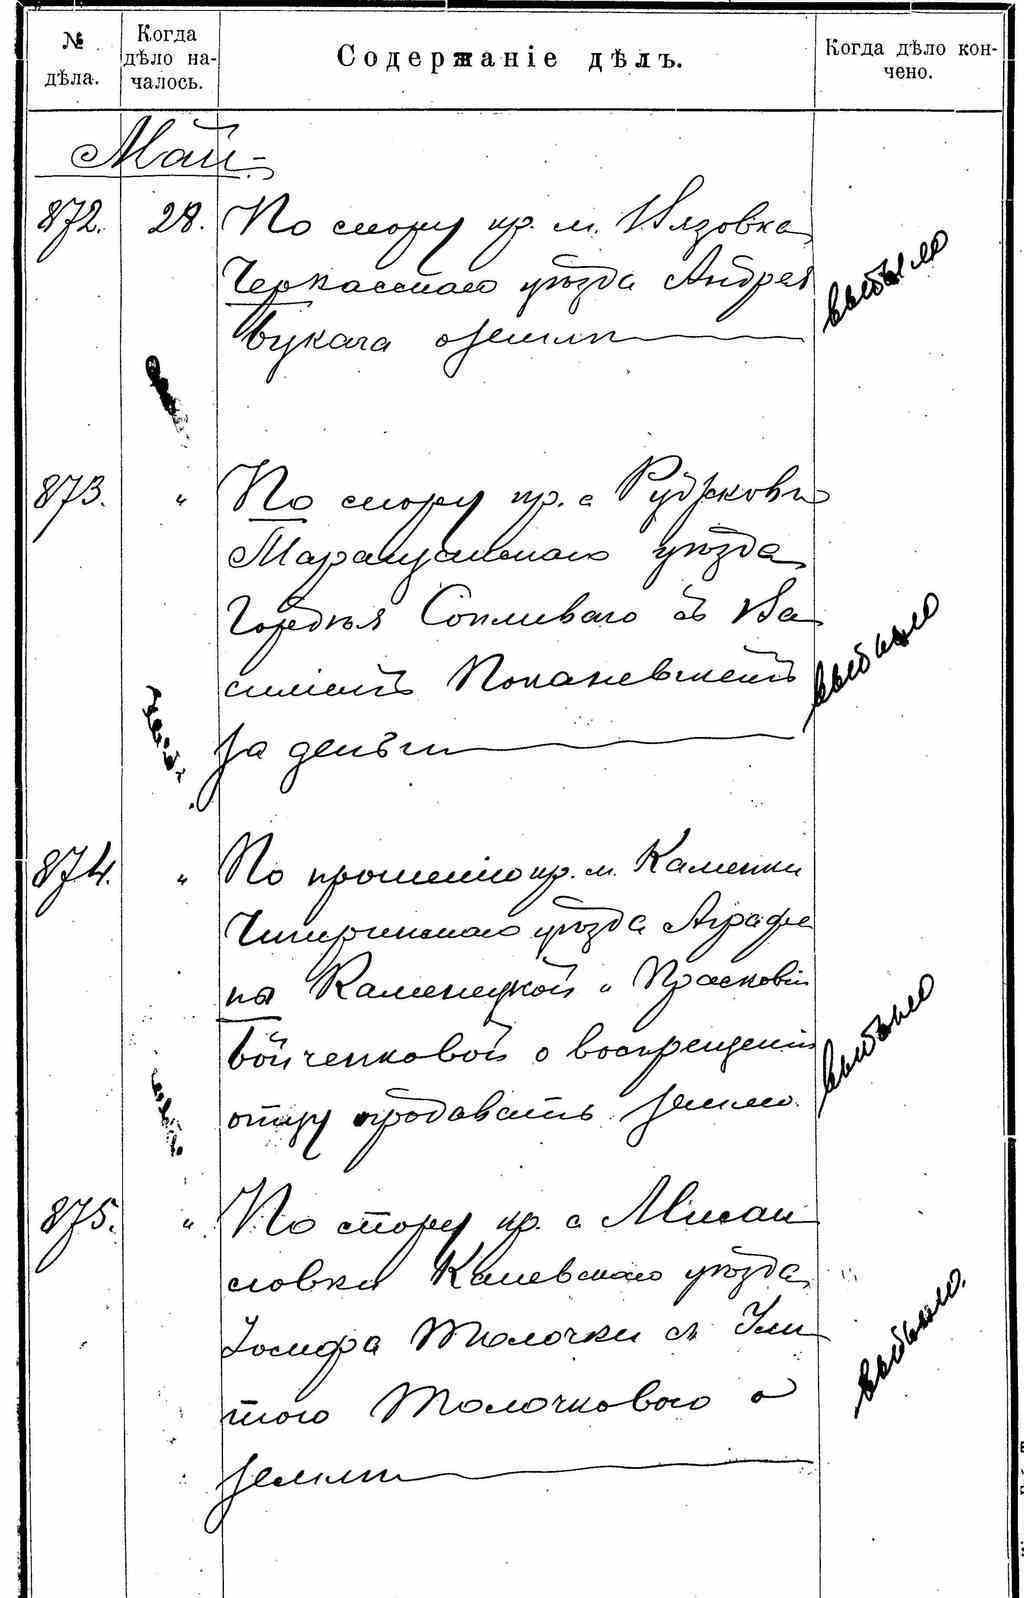 № дѣла.
Когда дѣло началось.
Содержаніе дѣлъ.
Когда дѣло кончено.
Май
872. 28. По спору кр. м. Вязовка
Черкасскаго уѣзда Андрея
Букача о землѣ
выбыло
873. " По спору кр. с
Таращанскаго уѣзда
Гордѣя Сопливаго съ Ва
силіемъ
за деньги
выбыло
874. " По прошенію кр. м. Каменки
Чигиринскаго уѣзда Аграфе
ны Каменецкой и Прасковіи
Бойченковой о воспрещеніи
отцу продавать землю.
выбыло
875. " По спору кр. с
словки Каневскаго уѣзда
Іосифа Толочки съ
Толочковою о
землѣ
выбыло.